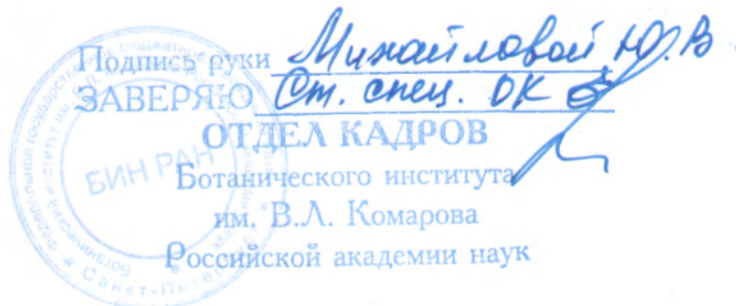 Подпись руки Михайловой Ю.В
ЗАВЕРЯЮ Ст. спец. ОК
ОТДЕЛ КАДРОВ
Ботанического института
им. В.Л. Комарова
Российской академии наук
БИН РАН
Санкт-Петербург